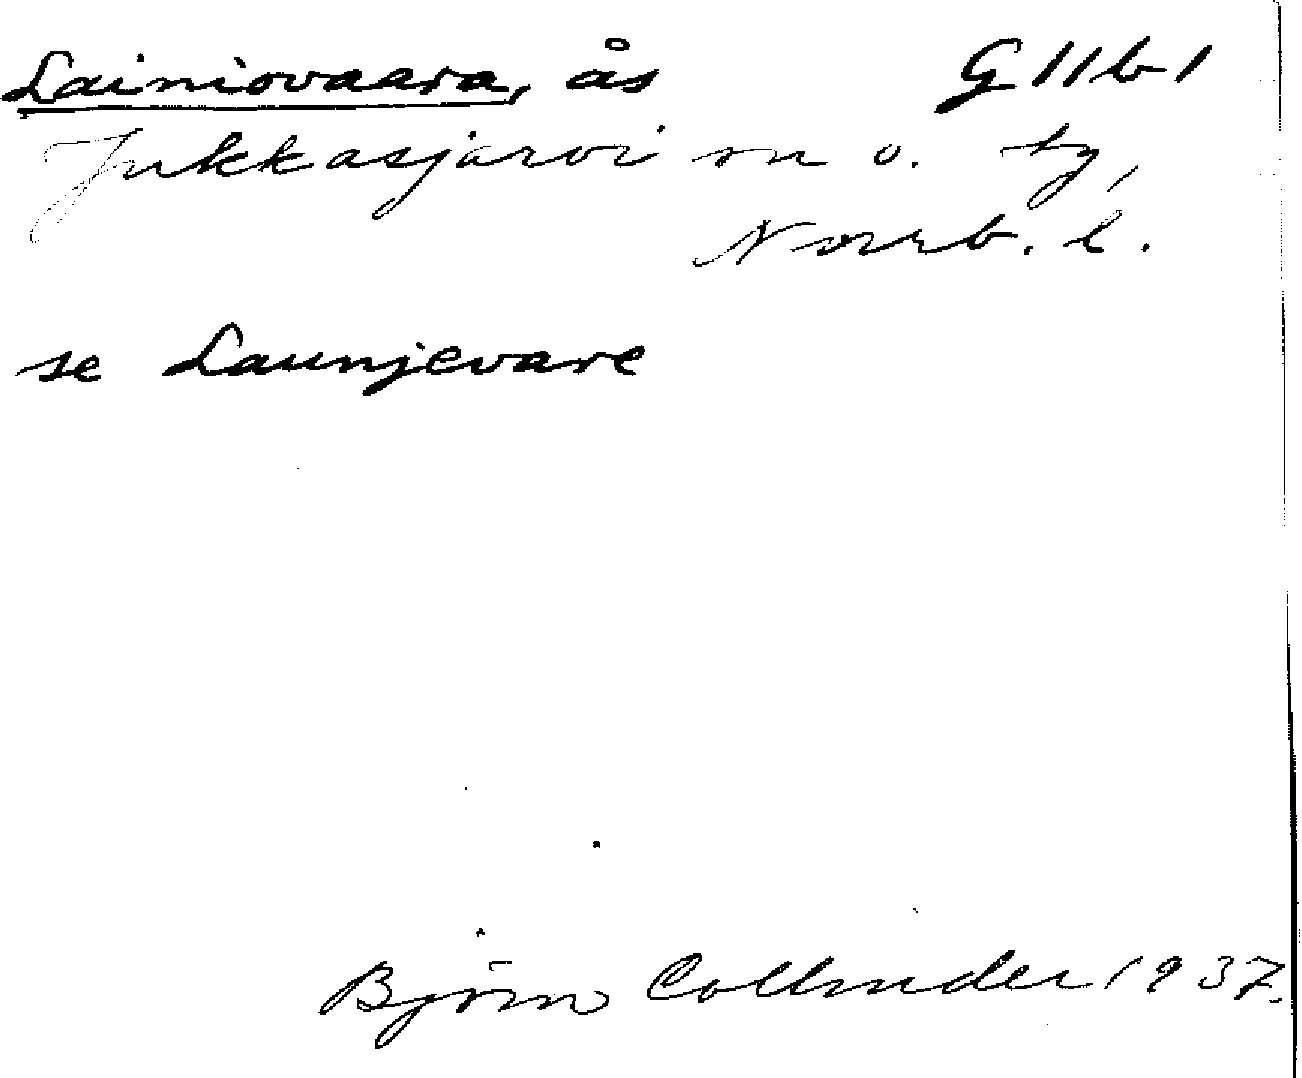 Lainiovaara, ås G 11 b 1
Jukkasjärvi sn o. tg,
Norrb. l.
se Launjevare
Björn Collinder 1937.